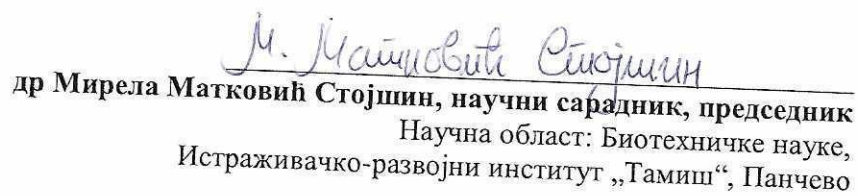 М. Матковић Стојшин
др Мирела Матковић Стојшин, научни сарадник, председник
Научна област: Биотехничке науке,
Истраживачко-развојни институт „Тамиш“, Панчево